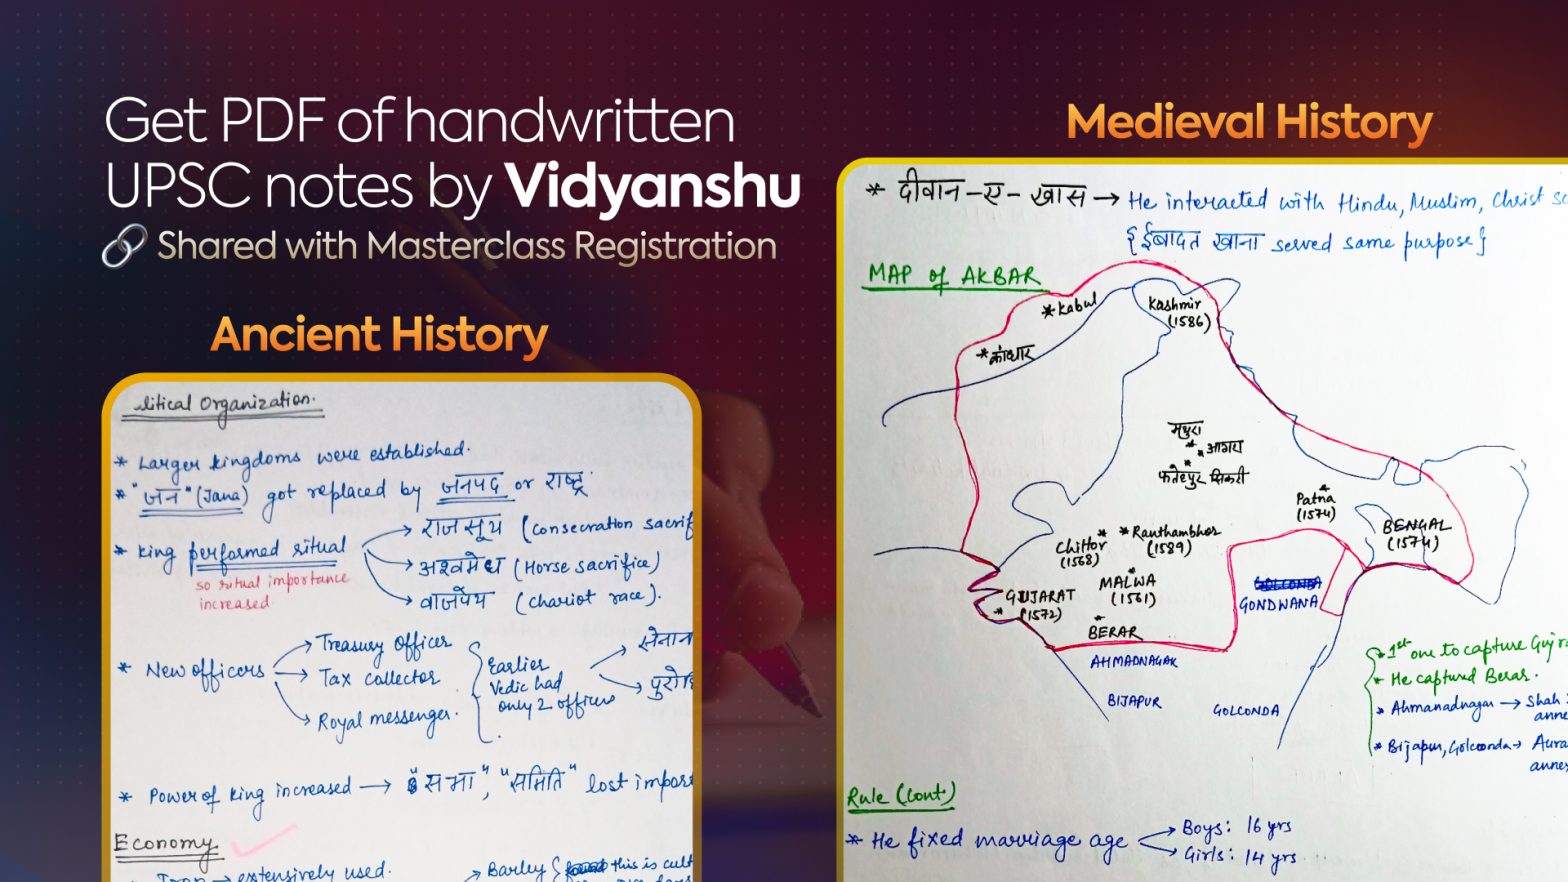 Get PDF of handwritten
UPSC notes by Vidyanshu
Shared with Masterclass Registration
Ancient History
litical Organization.
* Larger kingdoms were established.
* "जन" (Jana) got replaced by जनपद or राष्ट्र
* King performed ritual
so ritual importance
increased.
→ राजसूय (consecration sacrif
→ अश्वमेध (Horse sacrifice)
→ वाजपेय (chariot race).
* New officers
→ Treasury officer
→ Tax collector
→ Royal messenger.
Earlier
Vedic had
only 2 officers
→ सेनान
→ पुरोहि
* Power of king increased → "सभा", "समिति" lost impor
Economy
Iron → extensively used.
→ Barley { this is cult
Medieval History
* दीवान-ए-खास → He interacted with Hindu, Muslim, Christ
{ ईबादत खाना served same purpose}
MAP of AKBAR
* Kabul
Kashmir
(1586)
* कांधार
मथुरा
* आगरा
फतेहपुर सिकरी
Patna
(1574)
BENGAL
(1574)
Chittor
(1568)
* Ranthambhor
(1589)
MALWA
(1561)
GUJARAT
(1572)
BERAR
GONDWANA
AHMADNAGAR
BIJAPUR
GOLCONDA
* 1st one to capture Gujra
* He captured Berar.
* Ahmanadnagar → Shah
anne
* Bijapur, Golconda → Aura
annex
Rule (Cont.)
* He fixed marriage age
→ Boys: 16 yrs
→ Girls: 14 yrs.